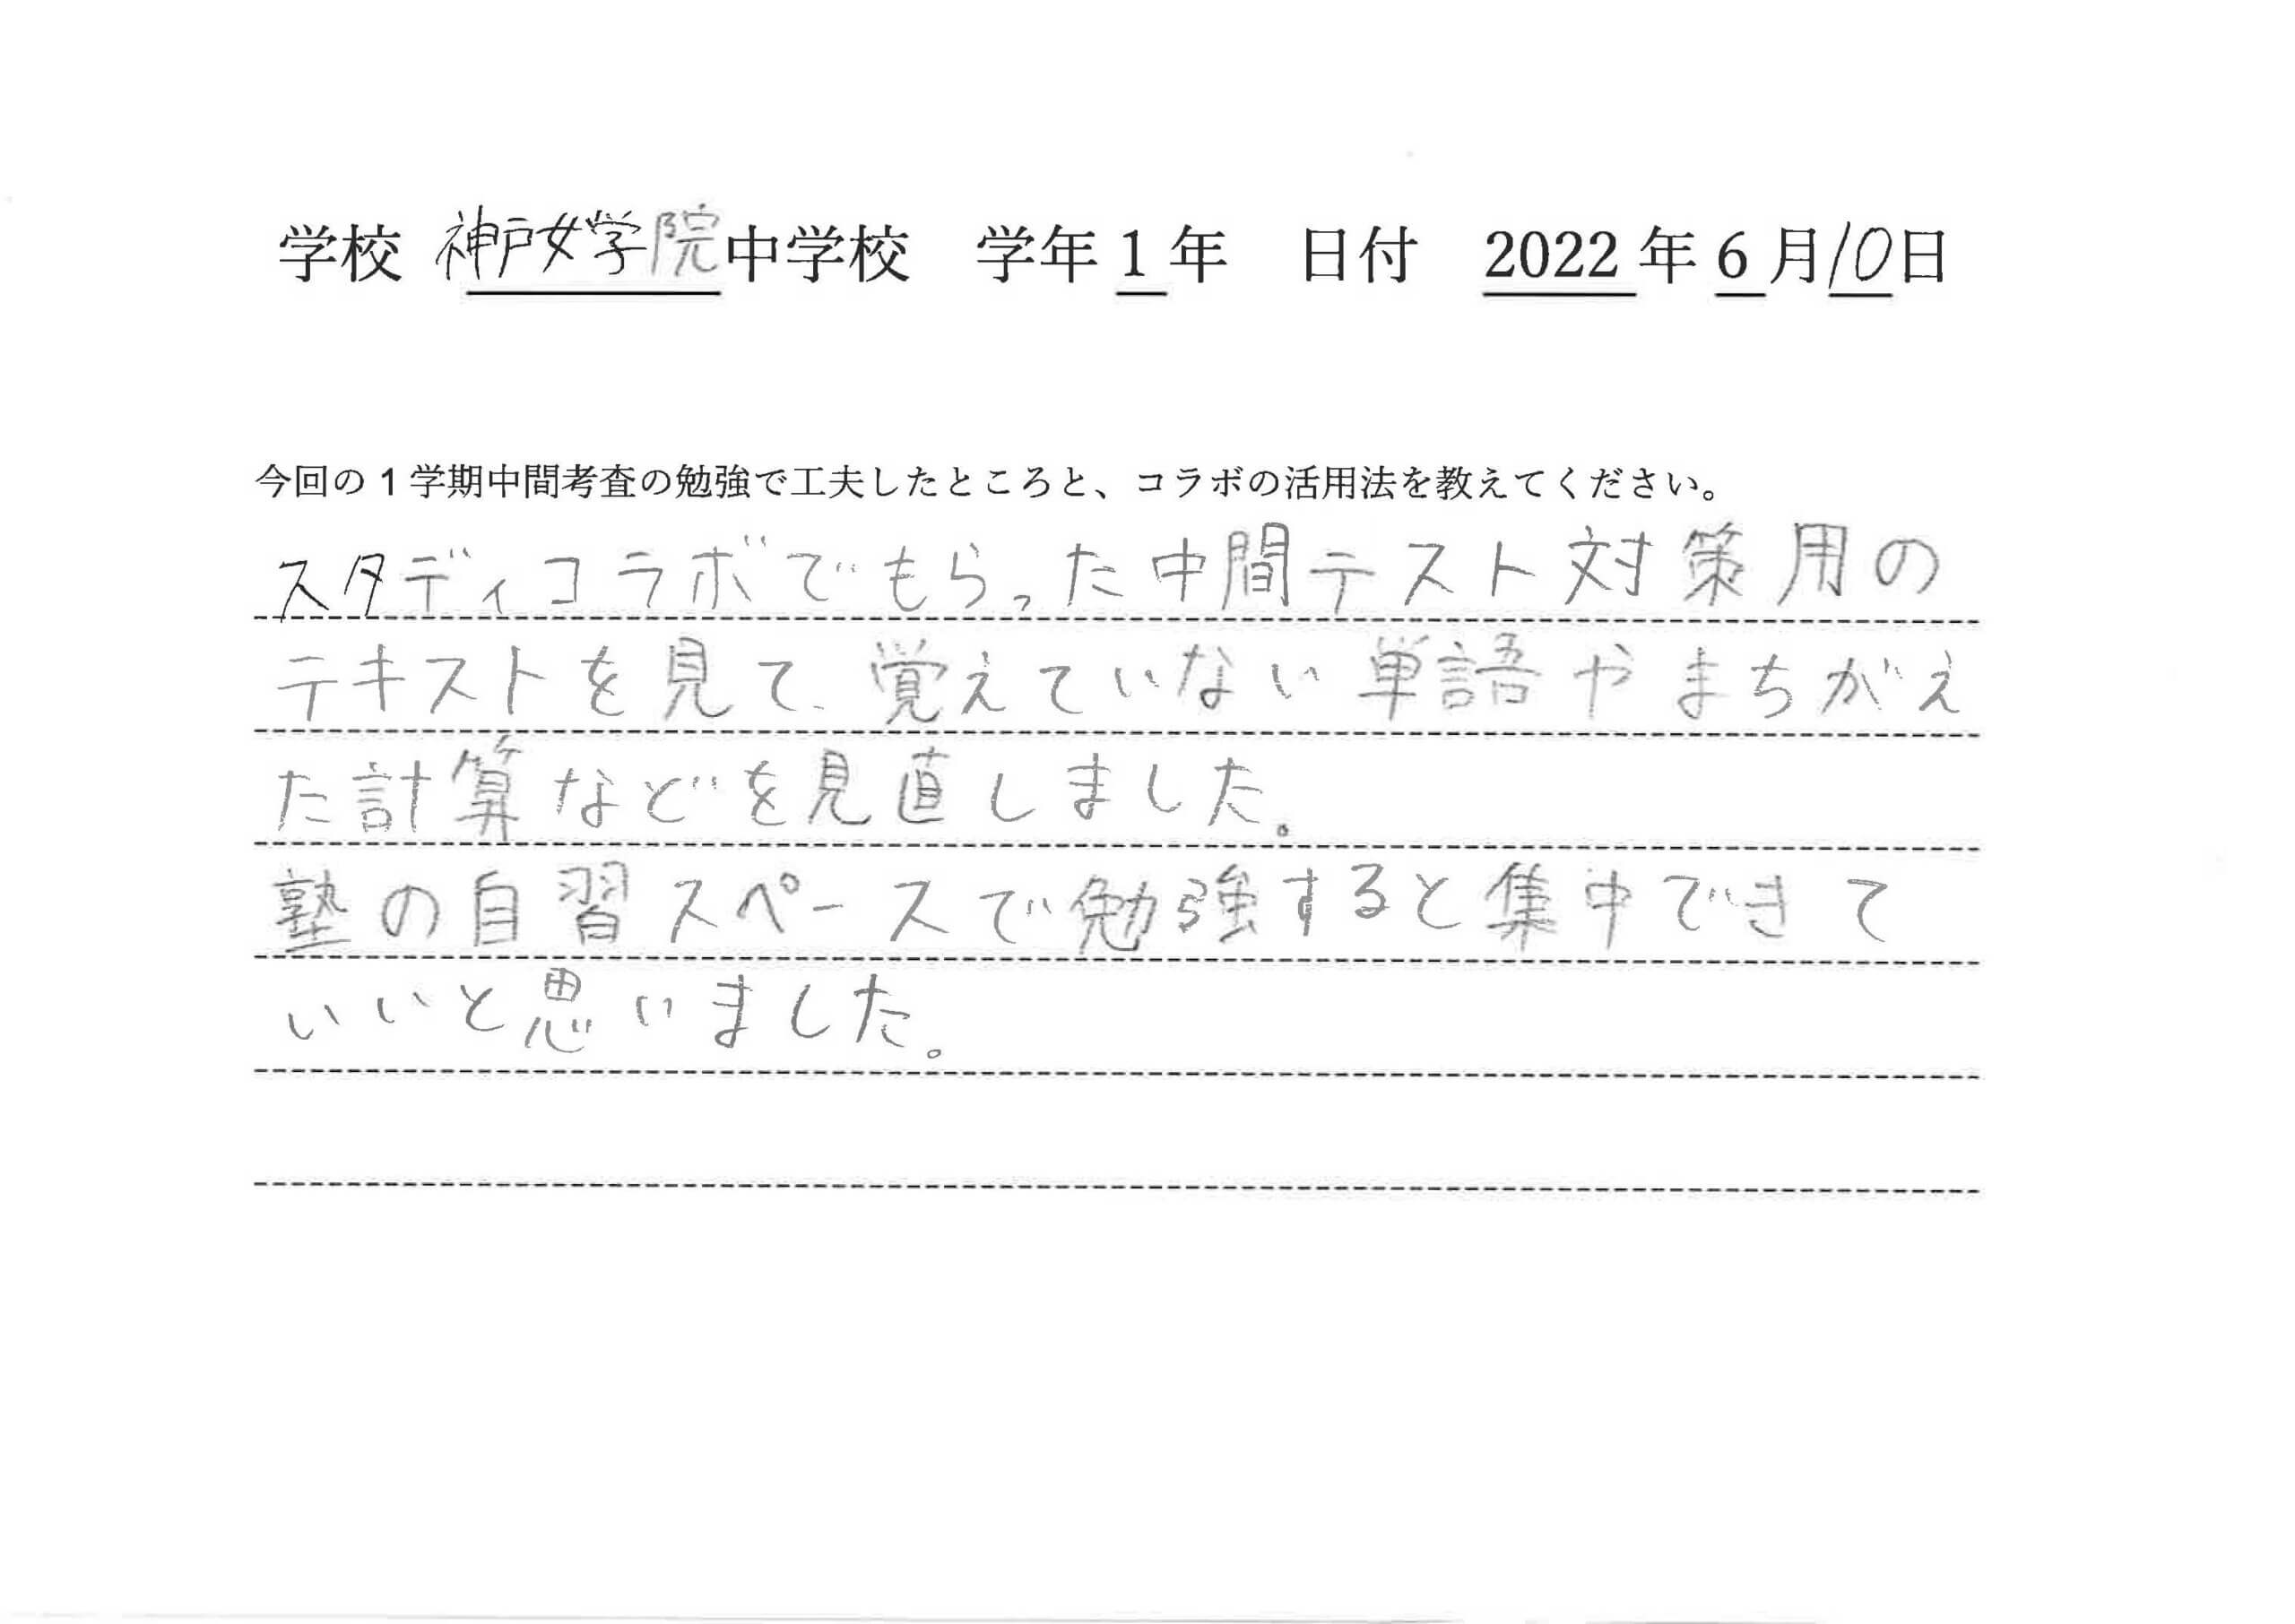 学校 神戸女学院中学校 学年1年 日付 2022年6月10日
今回の1学期中間考査の勉強で工夫したところと、コラボの活用法を教えてください。
スタディコラボでもらった中間テスト対策用の
テキストを見て、覚えていない単語やまちがえ
た計算などを見直しました。
塾の自習スペースで勉強すると集中できて
いいと思いました。